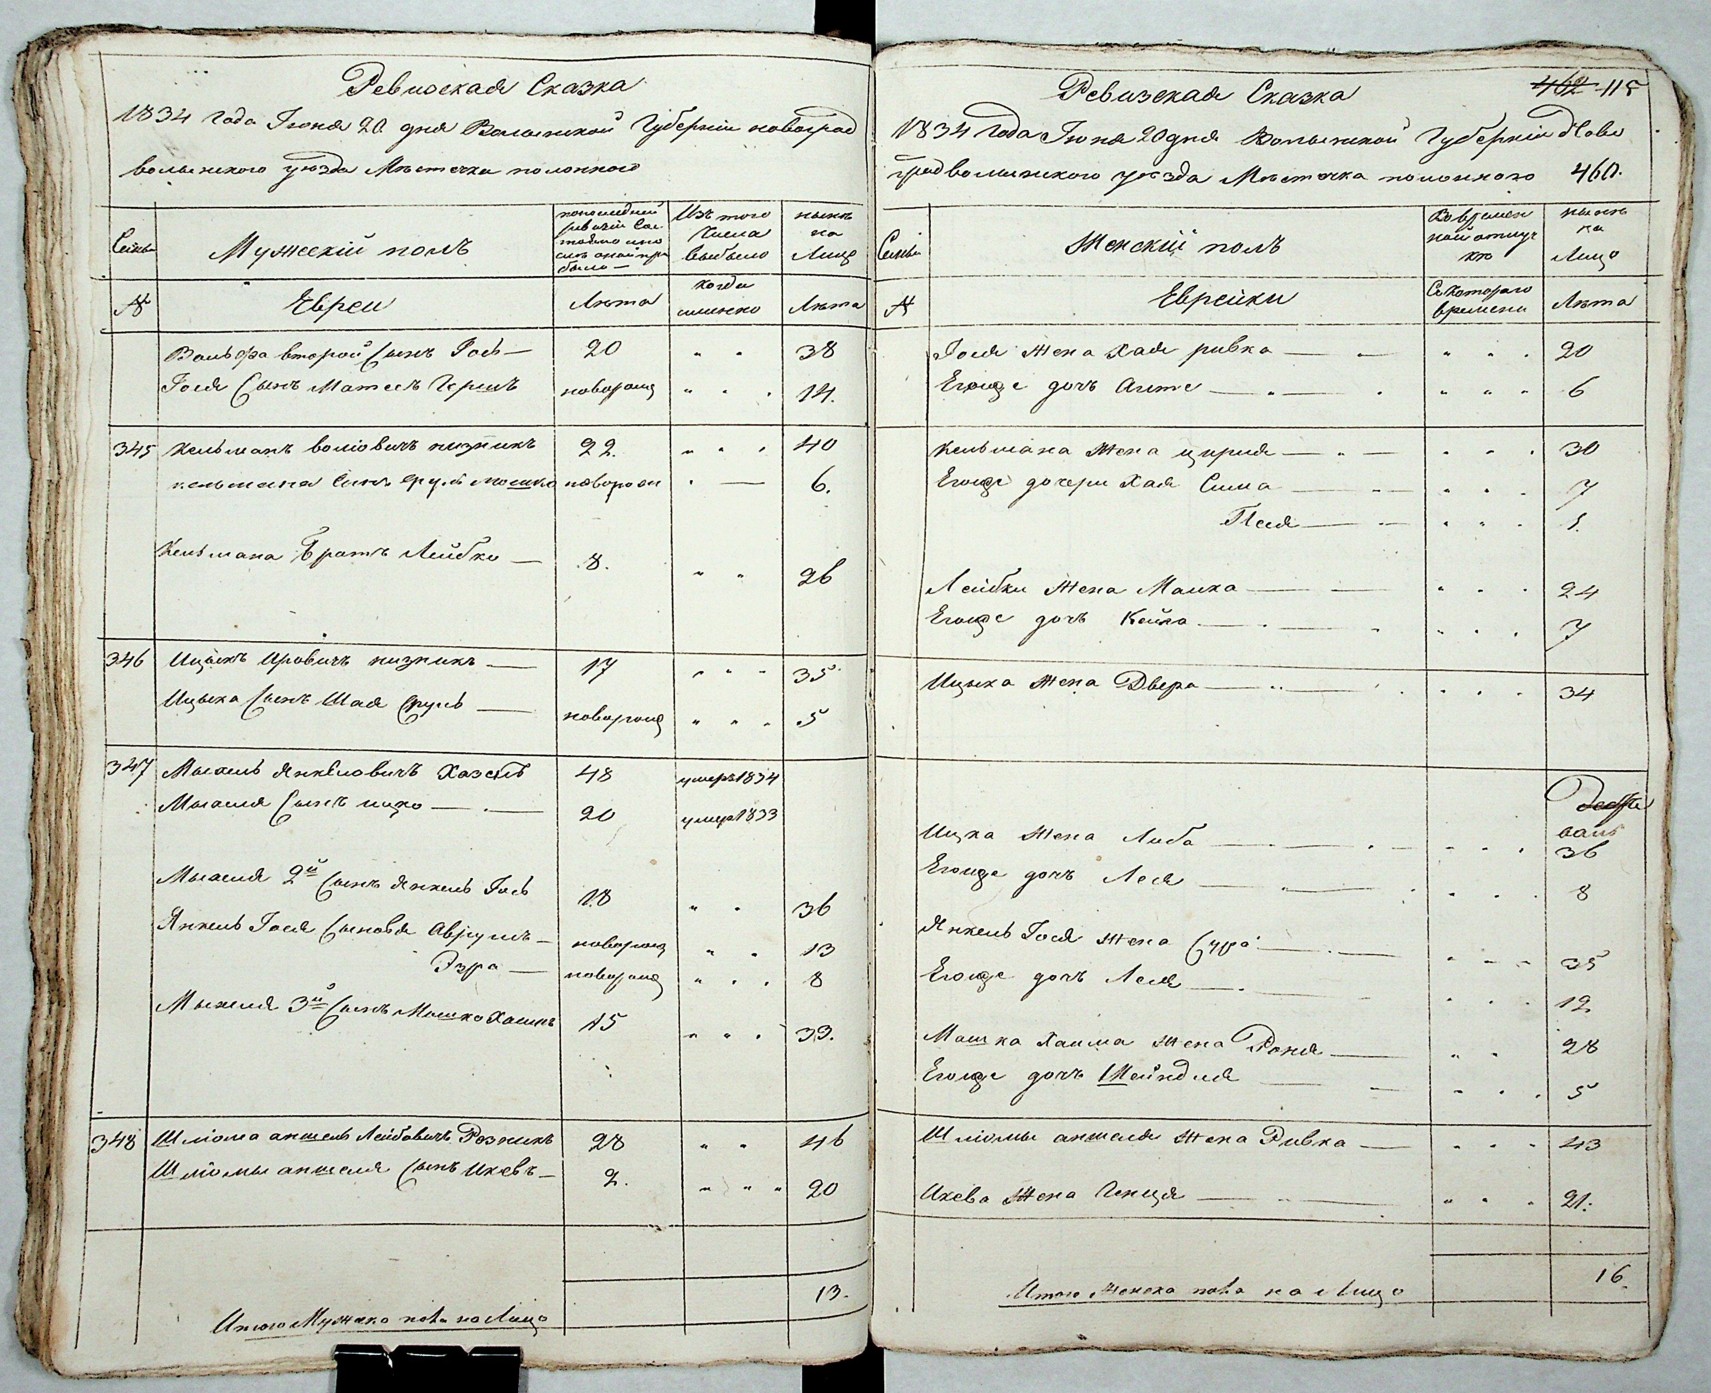 Ревизская Сказка
1834 года Іюня 20 дня Волынской Губерніи новоград
волынского уезда Мѣстечка полонного
Семьи
Мужескій полъ
Изъ того
числа
выбыло
нынѣ
на
Лицо
№
Евреи
Лѣта
когда
именно
Лѣта
Вольфа второй Сынъ Іось 20 " " 38
Іося Сынъ Матесъ Гершъ новорожд " " " 14.
345 Кельманъ волковичъ пизникъ 22. " " " 40
кельмана Сынъ Сруль мошко новорож " — 6.
Кельмана Братъ Лейбко — 8. " " 26
346 Ицыкъ Ировичъ пизникъ — 17 " " " 35
Ицыка Сынъ Шая Сруль — новорожд " " " 5
347 Мысель Янкеловичъ Хазанъ 48 умеръ 1834
Мыселя Сынъ ицко — 20 умер 1833
Мыселя 2й Сынъ Янкель Іось 18 " " 36
Янкель Іося Сыновья Аврумъ — новорожд " " 13
Эзра — новорожд " " " 8
Мыселя 3й Сынъ Мошко Хаимъ 15 " " " 33.
348 Шліома аншель Лейбовичъ Резникъ 28 " " 46
Шліомы аншеля Сынъ Икевъ — 2. " " " 20
13.
Итого Мужска пола на Лицо
Ревизская Сказка
462 115
1834 года Іюня 20 дня Волынской Губерніи Ново
градволынского уезда Мѣстечка полонного 460.
Семьи
Женскій полъ
Во времен
ной отлуч
кѣ
нынѣ
на
Лицо
№
Еврейки
С котораго
времени
Лѣта
Іося жена Хая ривка — — " " " 20
Егожде дочь Антс — " — " " " 6
Кельмана жена ципря — " — " " " 30
Егожде дочери Хая Сима — " " " 7
Песя — " " " 1.
Лейбки жена Малка — — " " " 24
Егожде дочь Кейла — " " " 7
Ицыка жена Двера — " — " " " 34
Ицка жена Либа — " " " 36
Егожде дочь Лея — " " " 8
Янкель Іося жена Сура — " " " 35
Егожде дочь Лея — " " " 12
Мошка Хаима жена Роня — " " 28
Егожде дочь Шейндля — " " " 5
Шліомы аншеля жена Ривка — " " " 43
Икева жена Генця — " " " 21.
16.
Итого женска пола на Лицо